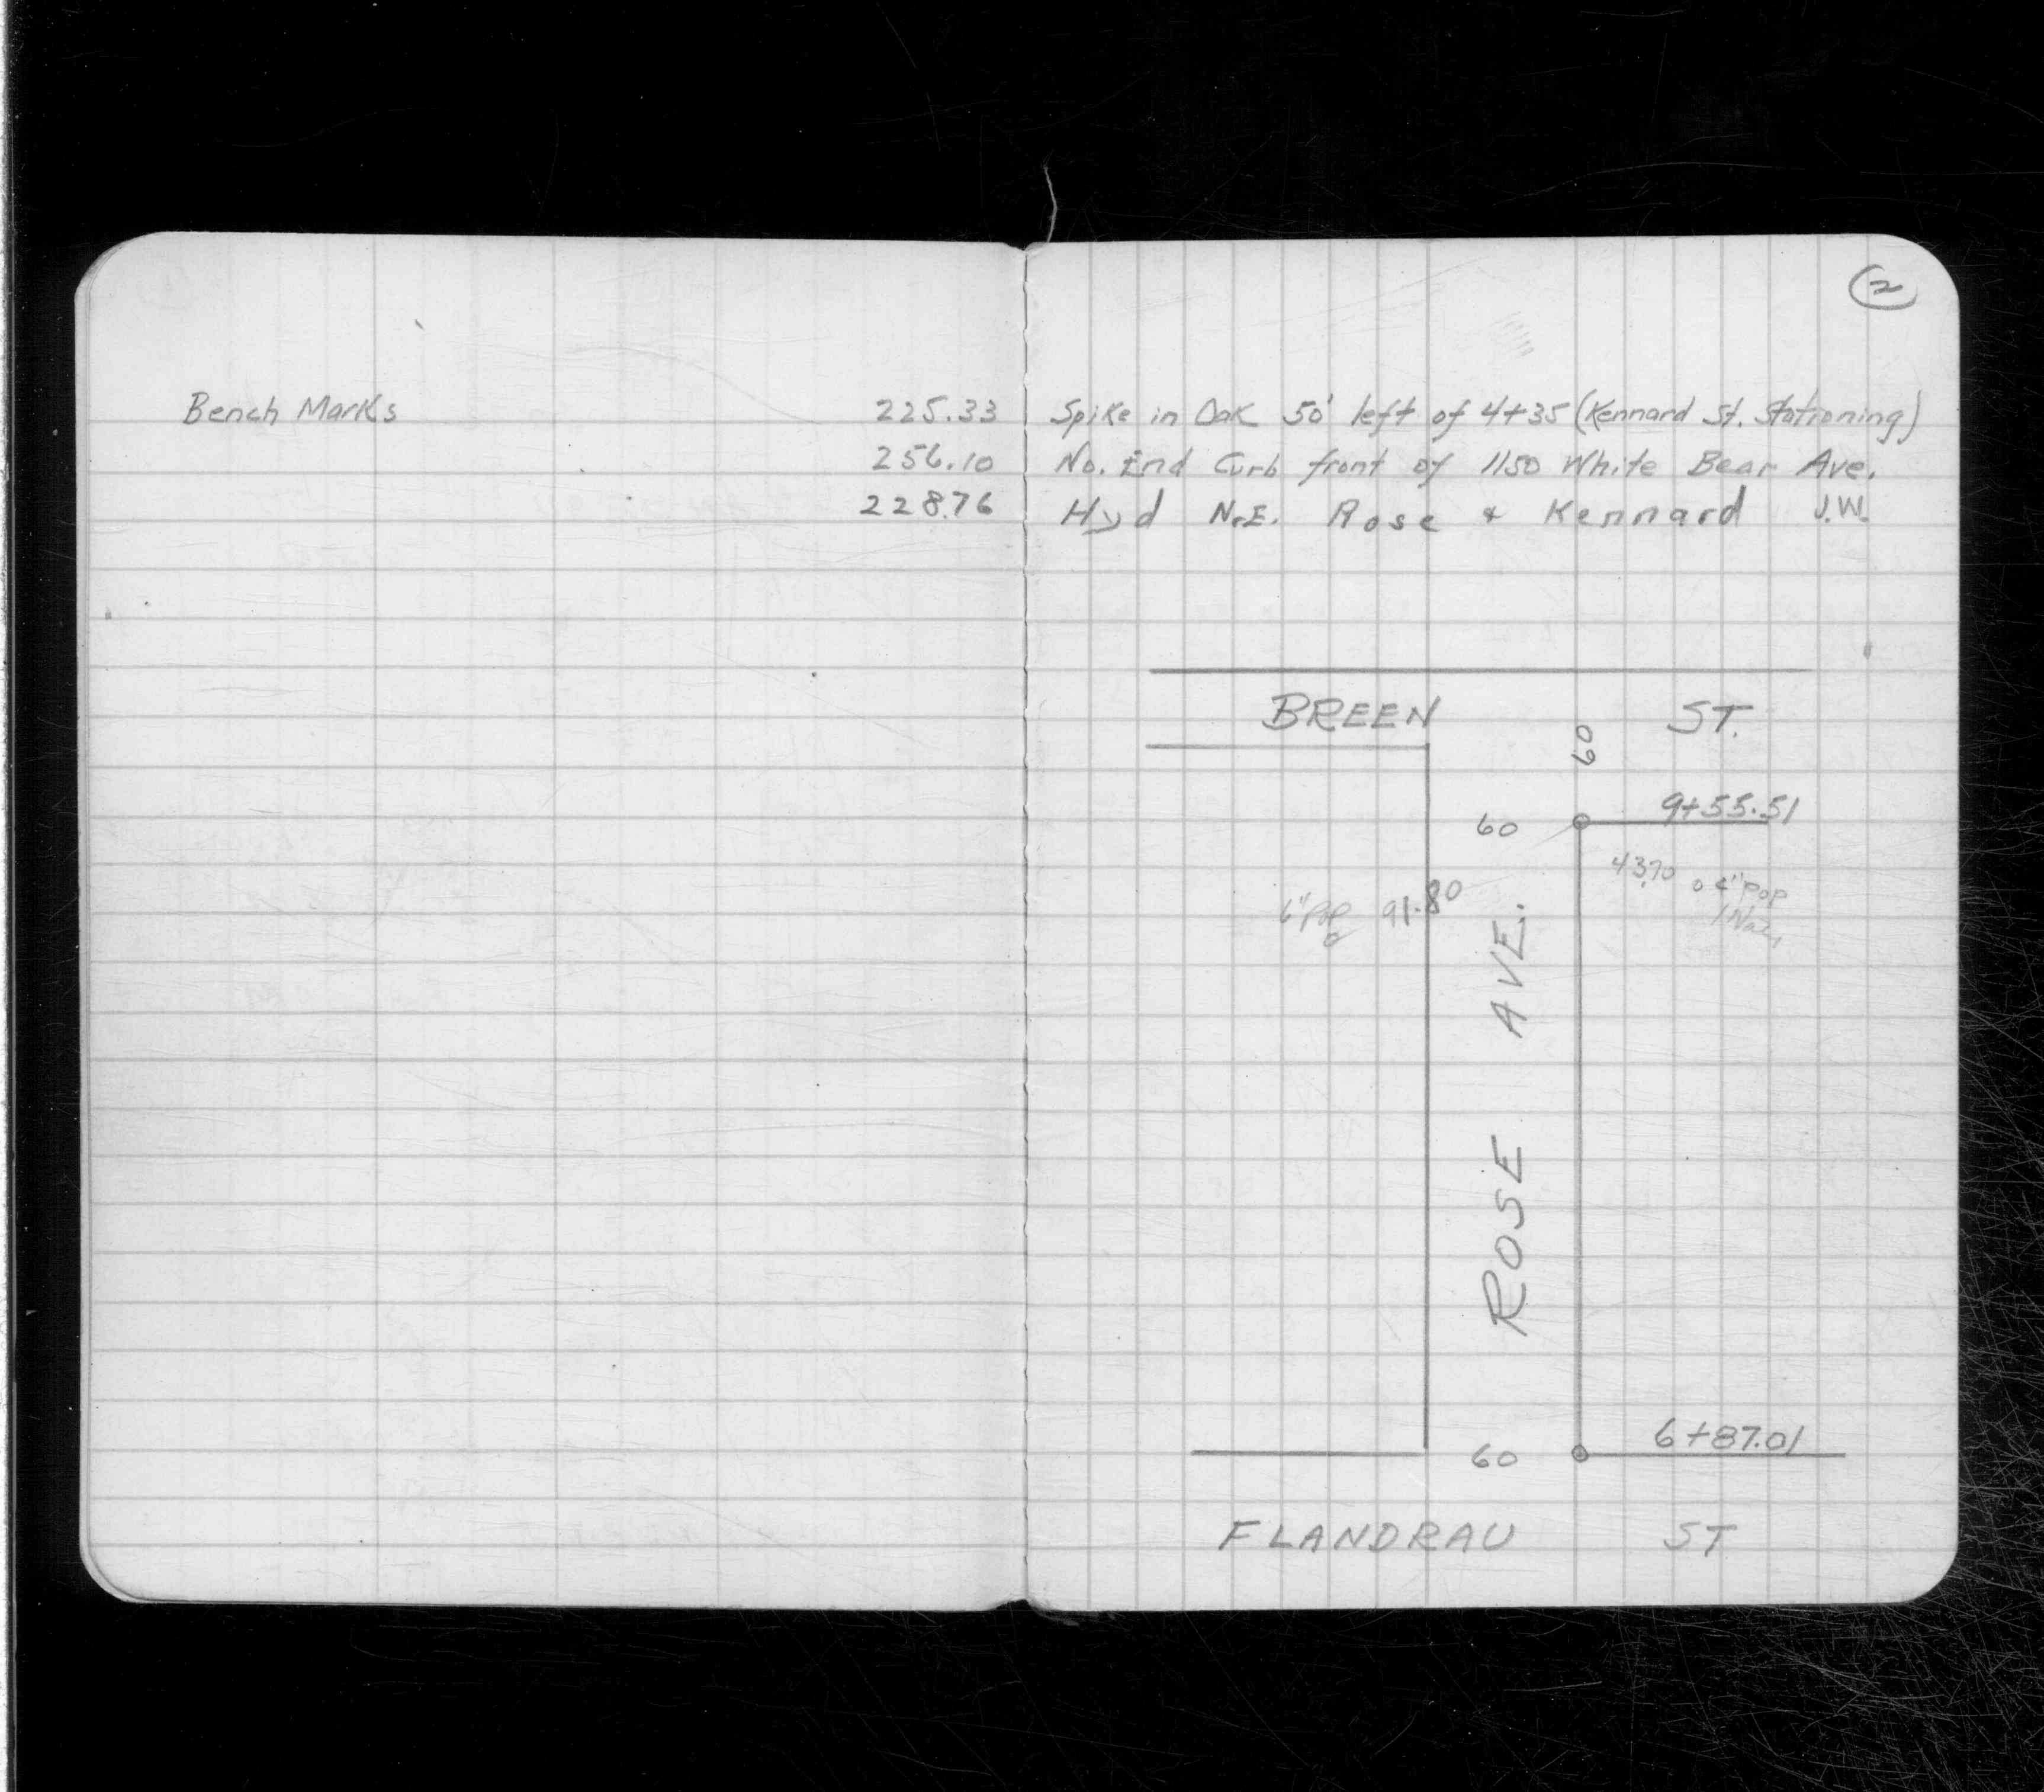 2
Bench Marks 225.33 Spike in Oak 50' left of 4+35 (Kennard St. Stationing)
256.10 No. End Curb front of 1150 White Bear Ave.
228.76 Hyd N.E. Rose & Kennard J.W.
BREEN ST.
60
9+55.51
60
43.70 4" Pop
6" Pop 91.80
ROSE AVE.
6+87.01
60
FLANDRAU ST